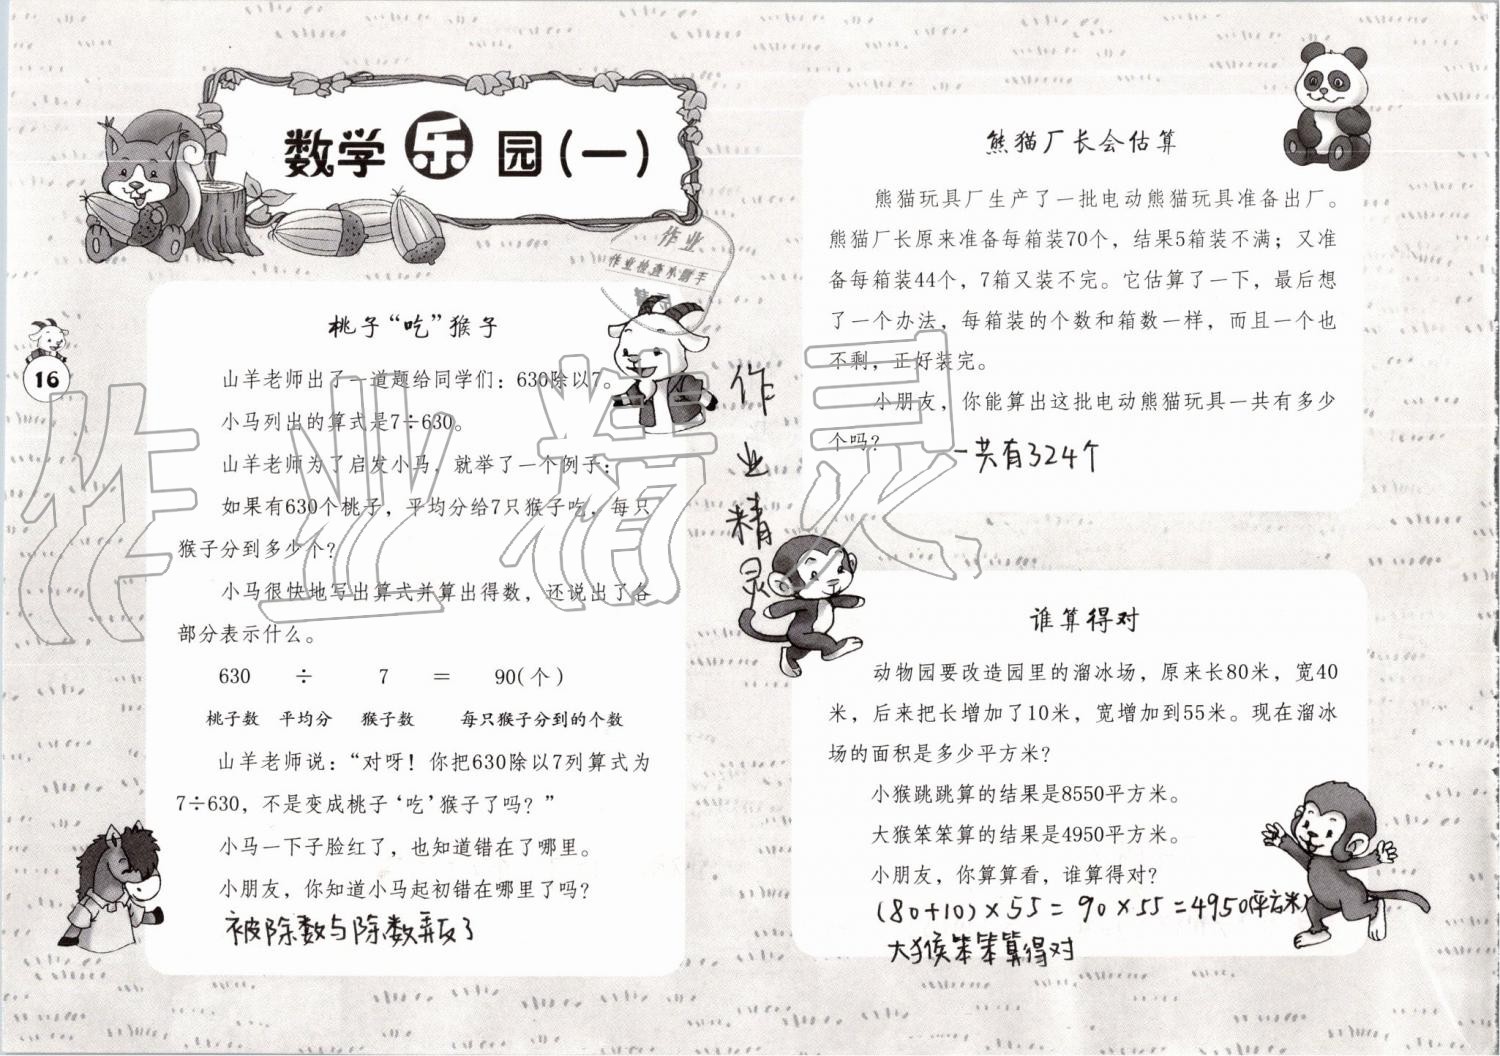 数学乐园（一）
16
桃子“吃”猴子
山羊老师出了一道题给同学们：630除以7。
小马列出的算式是7÷630。
山羊老师为了启发小马，就举了一个例子：
如果有630个桃子，平均分给7只猴子吃，每只
猴子分到多少个？
小马很快地写出算式并算出得数，还说出了各
部分表示什么。
630 ÷ 7 = 90（个）
桃子数 平均分 猴子数 每只猴子分到的个数
山羊老师说：“对呀！你把630除以7列算式为
7÷630，不是变成桃子‘吃’猴子了吗？”
小马一下子脸红了，也知道错在了哪里。
小朋友，你知道小马起初错在哪里了吗？
被除数与除数弄反了
作业
作业检查小助手
作业精灵
作业精灵
熊猫厂长会估算
熊猫玩具厂生产了一批电动熊猫玩具准备出厂。
熊猫厂长原来准备每箱装70个，结果5箱装不满；又准
备每箱装44个，7箱又装不完。它估算了一下，最后想
了一个办法，每箱装的个数和箱数一样，而且一个也
不剩，正好装完。
小朋友，你能算出这批电动熊猫玩具一共有多少
个吗？
一共有324个
谁算得对
动物园要改造园里的溜冰场，原来长80米，宽40
米，后来把长增加了10米，宽增加到55米。现在溜冰
场的面积是多少平方米？
小猴跳跳算的结果是8550平方米。
大猴笨笨算的结果是4950平方米。
小朋友，你算算看，谁算得对？
(80+10)×55=90×55=4950(平方米)
大猴笨笨算得对